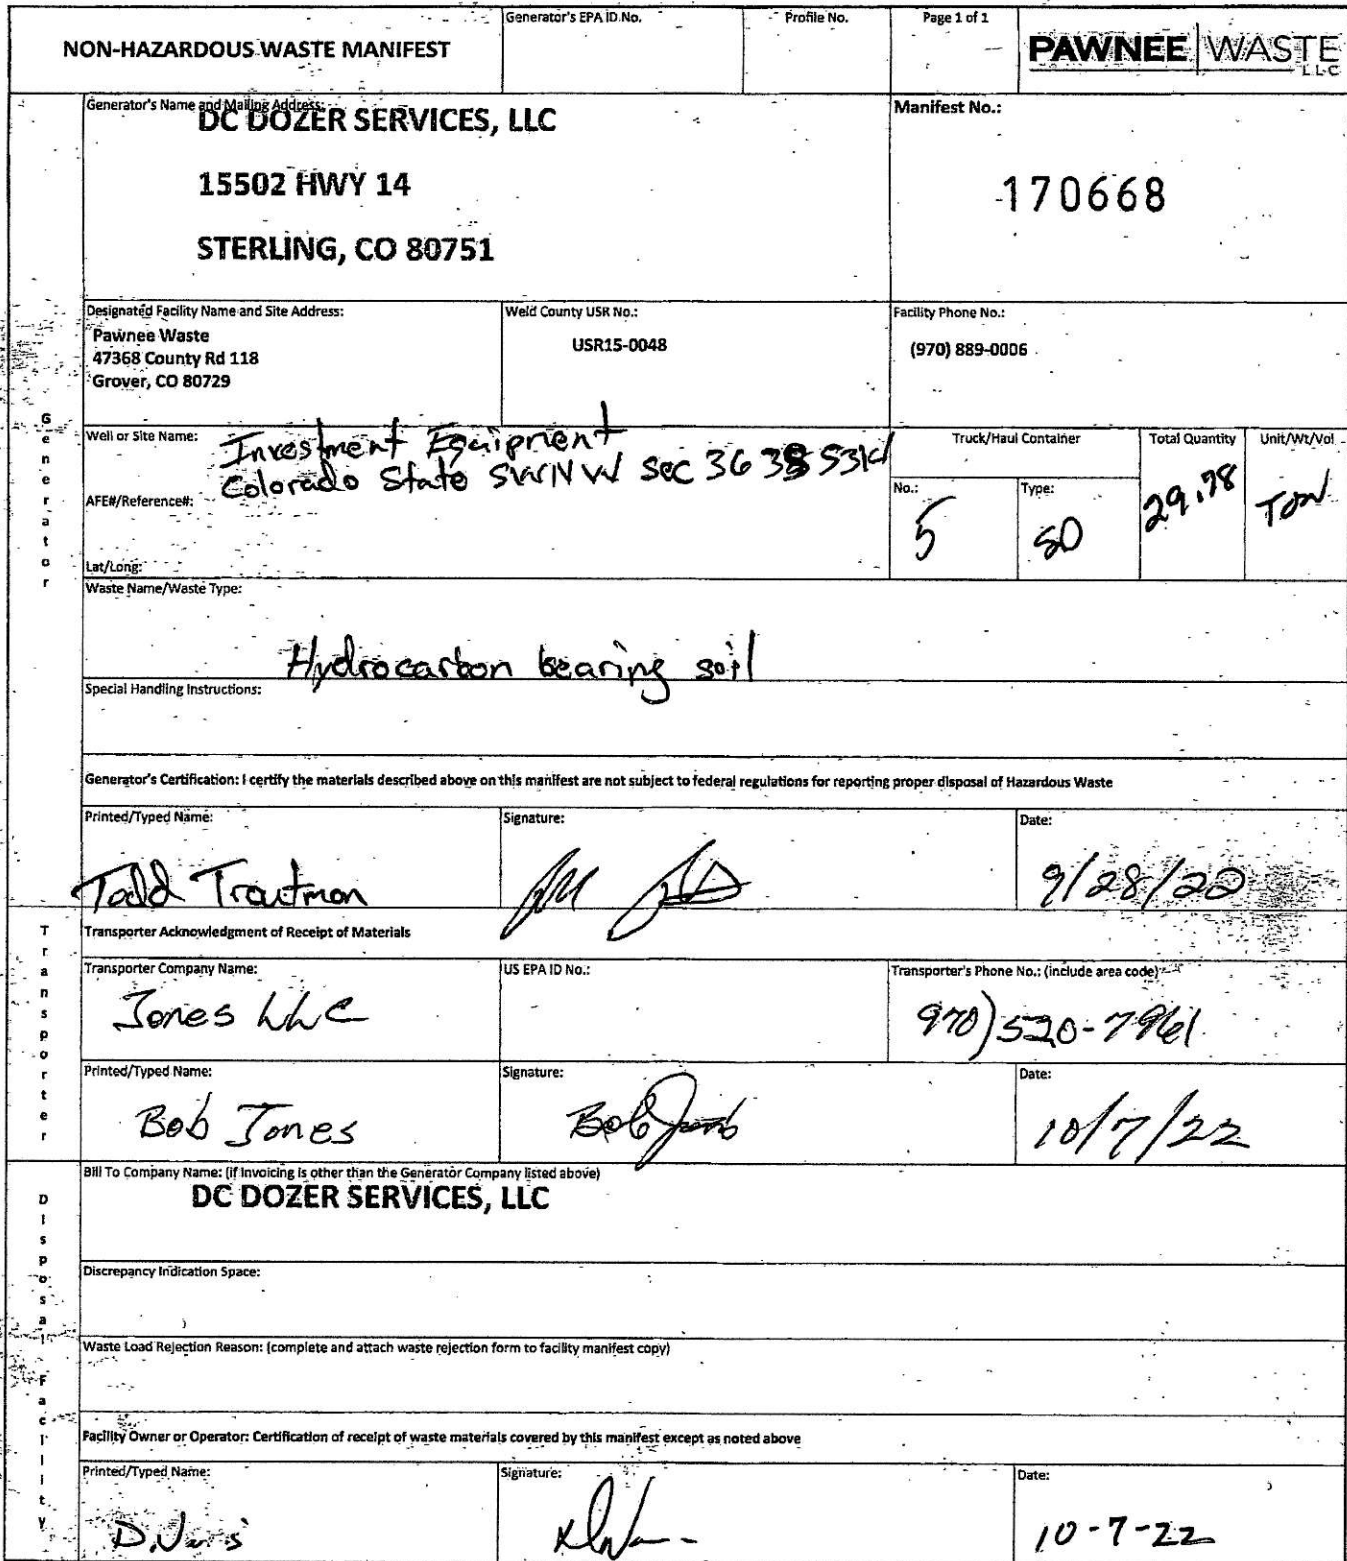 NON-HAZARDOUS WASTE MANIFEST
Generator's EPA ID No.
Profile No.
Page 1 of 1
PAWNEE WASTE
LLC
Generator's Name and Mailing Address:
DC DOZER SERVICES, LLC
15502 HWY 14
STERLING, CO 80751
Manifest No.:
170668
Designated Facility Name and Site Address:
Pawnee Waste
47368 County Rd 118
Grover, CO 80729
Weld County USR No.:
USR15-0048
Facility Phone No.:
(970) 889-0006
Generator
Well or Site Name:
Investment Equipment
Colorado State SWNW Sec 36
AFE#/Reference#:
Lat/Long:
Truck/Haul Container
No.:
5
Type:
SD
Total Quantity
29.78
Unit/Wt/Vol
TON
Waste Name/Waste Type:
Hydrocarbon bearing soil
Special Handling Instructions:
Generator's Certification: I certify the materials described above on this manifest are not subject to federal regulations for reporting proper disposal of Hazardous Waste
Printed/Typed Name:
Todd Trautman
Signature:
Date:
9/28/22
Transporter
Transporter Acknowledgment of Receipt of Materials
Transporter Company Name:
Jones LLC
US EPA ID No.:
Transporter's Phone No.: (include area code)
970) 520-7961
Printed/Typed Name:
Bob Jones
Signature:
Bob Jones
Date:
10/7/22
Disposal Facility
Bill To Company Name: (if Invoicing is other than the Generator Company listed above)
DC DOZER SERVICES, LLC
Discrepancy Indication Space:
Waste Load Rejection Reason: (complete and attach waste rejection form to facility manifest copy)
Facility Owner or Operator: Certification of receipt of waste materials covered by this manifest except as noted above
Printed/Typed Name:
Signature:
Date:
10-7-22